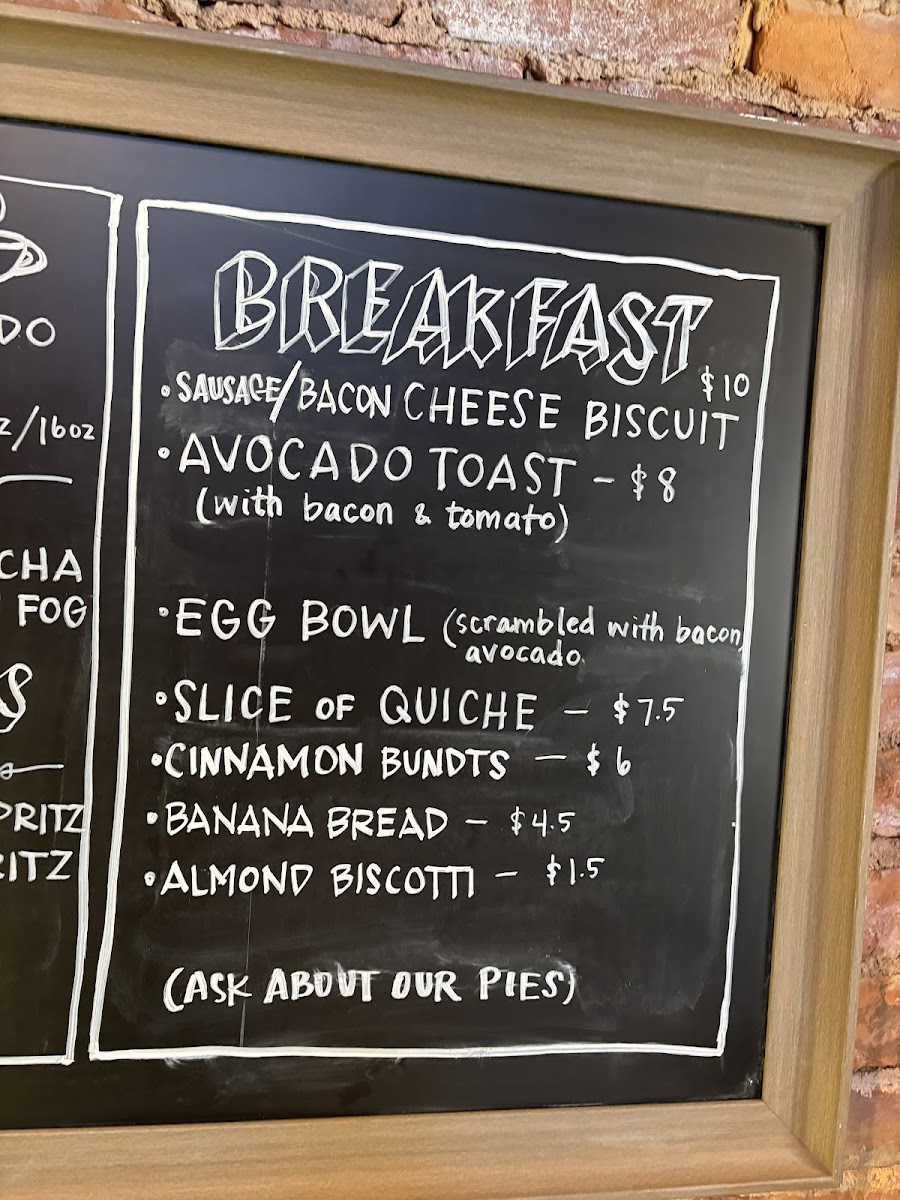 DO
/16oz
CHA
FOG
S
PRITZ
ITZ
BREAKFAST
$10
•SAUSAGE/BACON CHEESE BISCUIT
•AVOCADO TOAST - $8
(with bacon & tomato)
•EGG BOWL (scrambled with bacon,
avocado
•SLICE OF QUICHE - $7.5
•CINNAMON BUNDTS - $6
•BANANA BREAD - $4.5
•ALMOND BISCOTTI - $1.5
(ASK ABOUT OUR PIES)